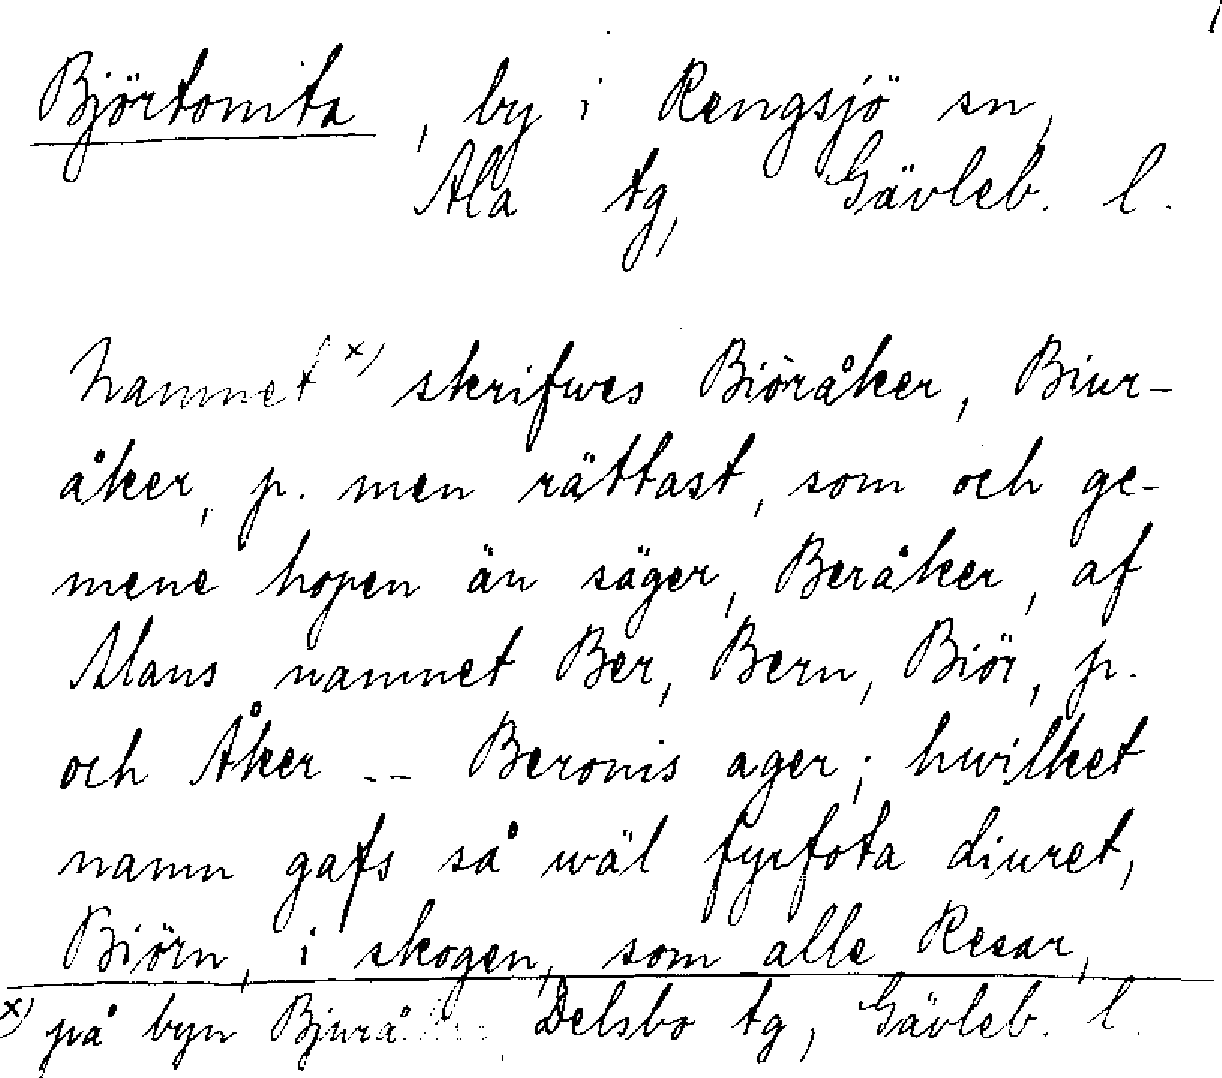 Björtomta, by i Rengsjö sn,
Ala tg, Gävleb. l.
Namnet x) skrifwes Biöråker, Biur-
åker, p. men rättast, som och ge-
mene hopen än säger, Beråker, af
Mans namnet Ber, Bern, Biör, p.
och Åker -- Beronis ager; hwilket
namn gafs så wäl fyrfota diuret,
Biörn, i skogen, som alle Resar,
x) på byn Bjurå Delsbo tg, Gävleb. l.